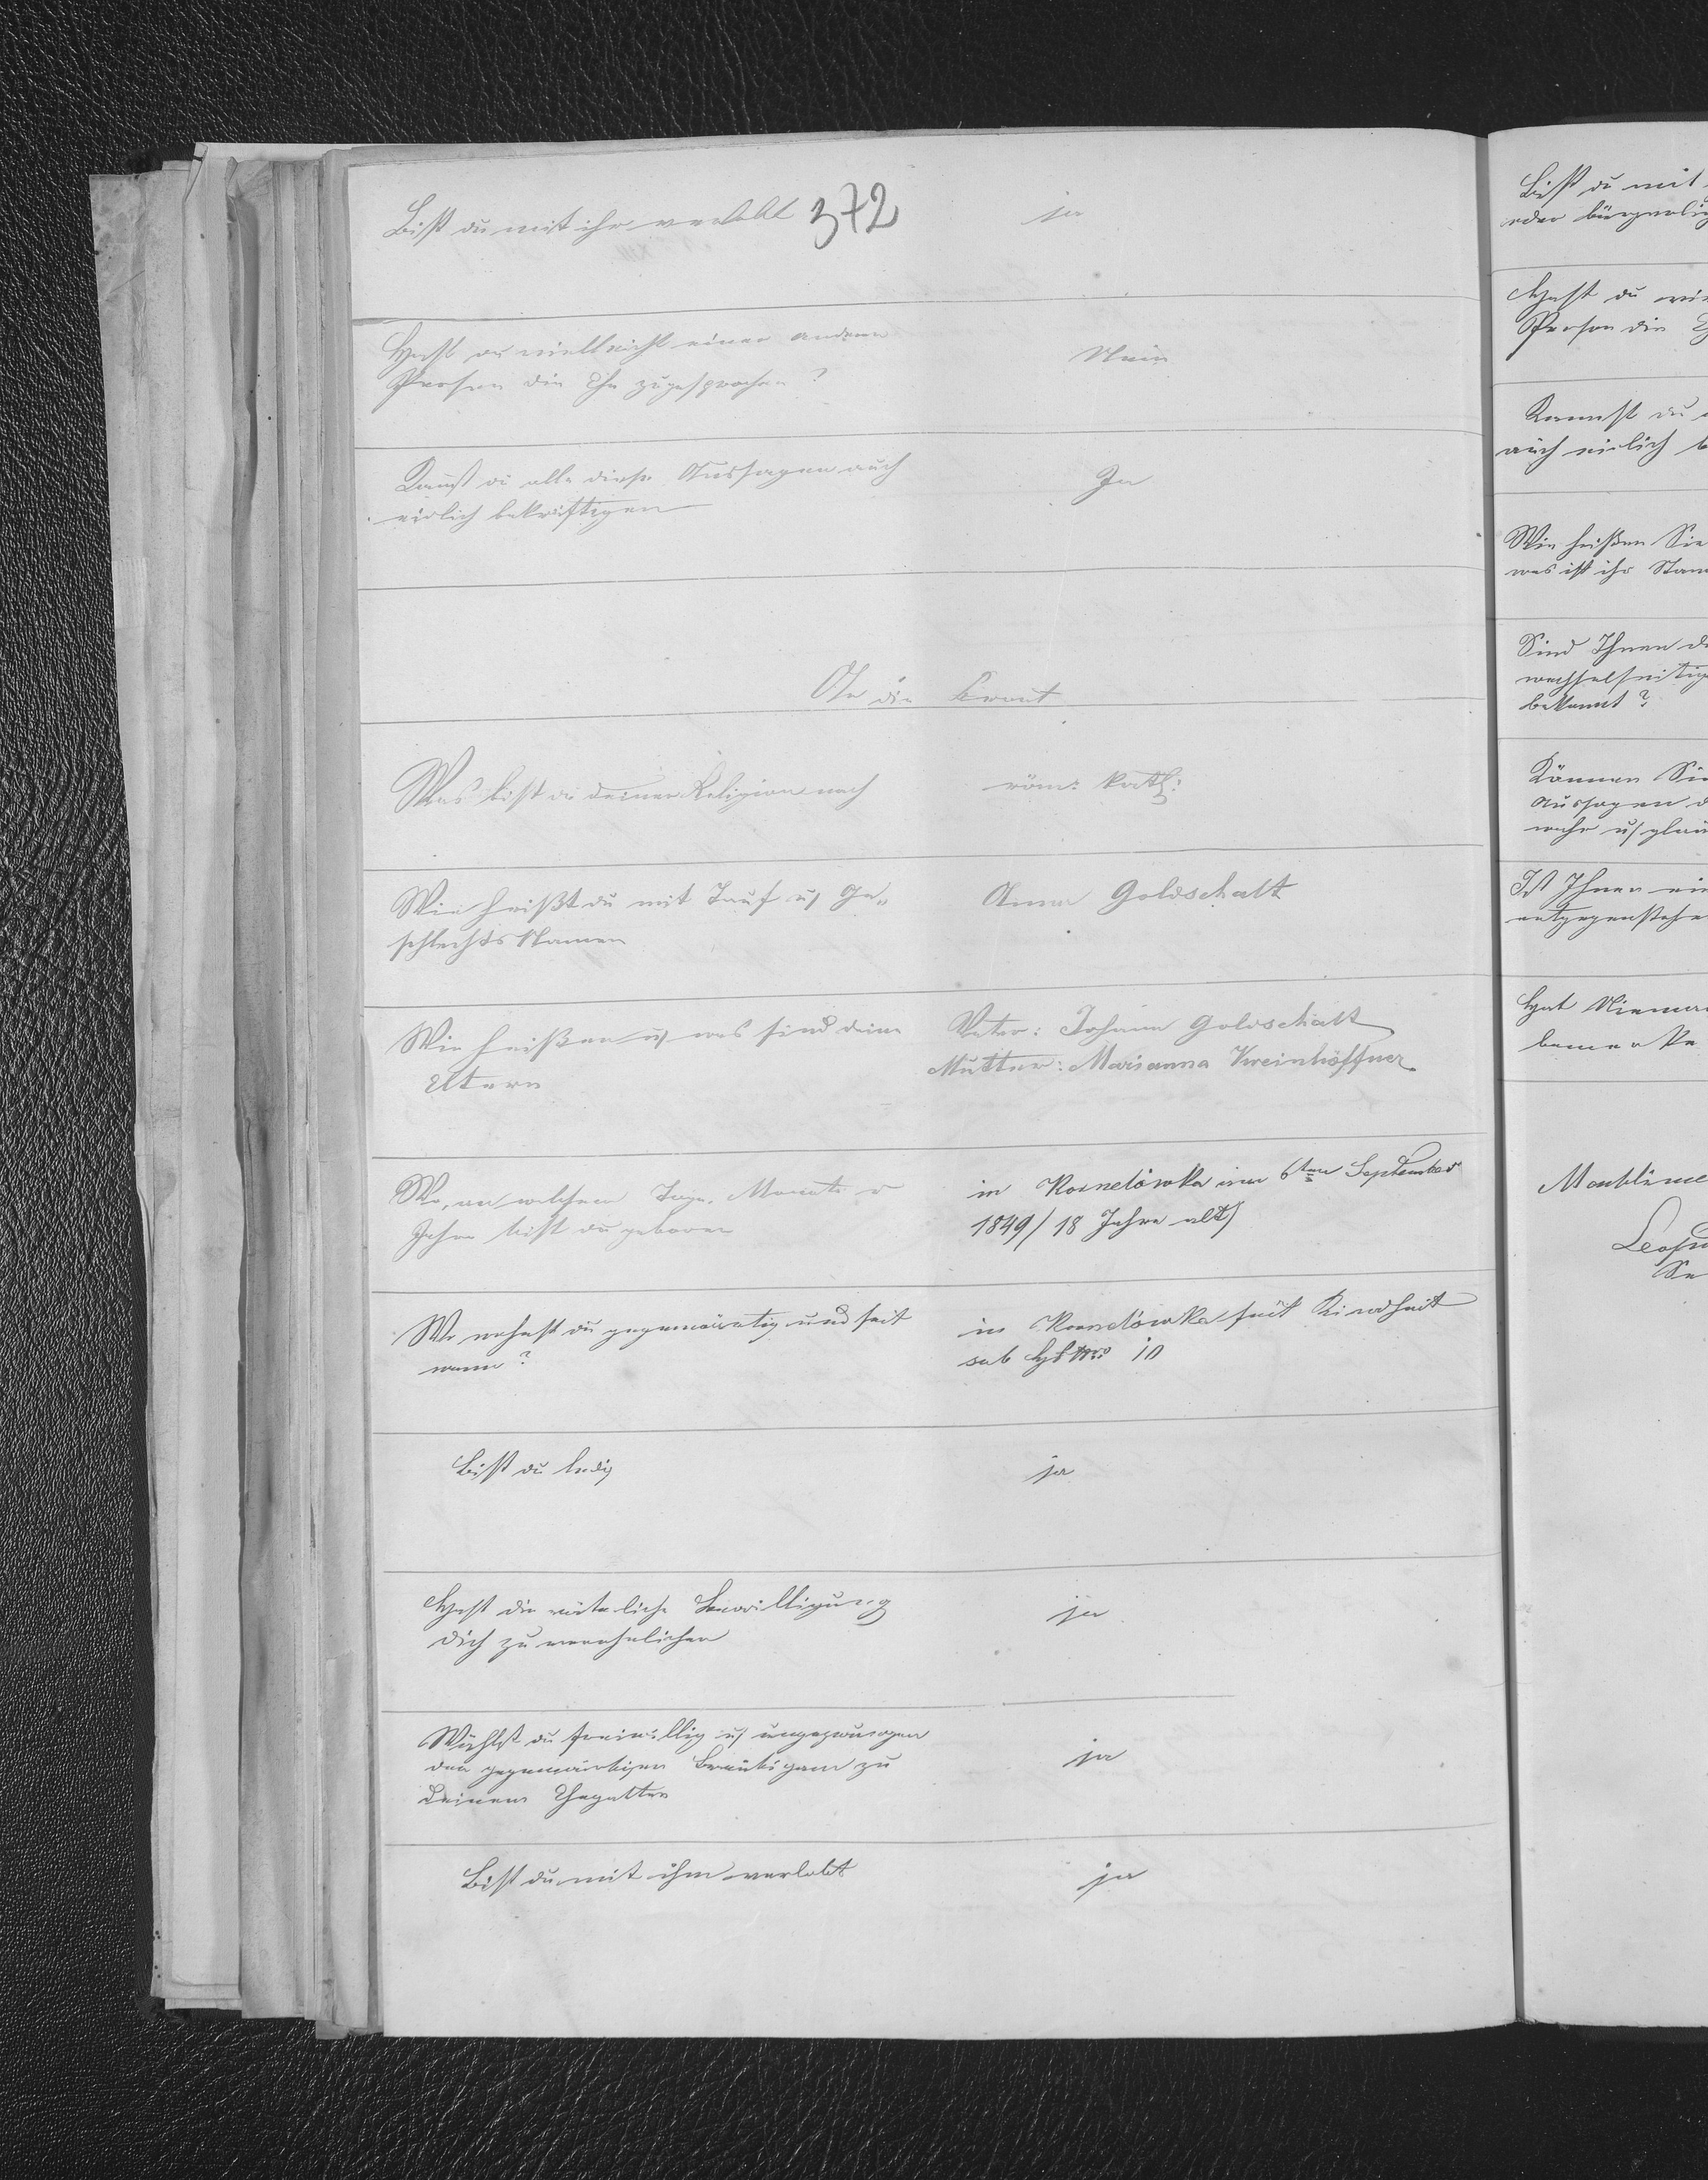 372
Bist du mit ihr verlobt ja
Hast du vielleicht einer anderen
Person die Ehe zugesprochen? Nein
Kannst du alle diese Aussagen auch
eidlich bekräftigen Ja
An die Braut
Was bist du deiner Religion nach röm: kath:
Wie heißt du mit Tauf u/ Ge„
schlechts Namen Anna Goldschalt
Wie heißen u/ was sind deine
Eltern
Vater: Johann Goldschalt
Mutter: Marianna Kreinhöffner
Wo, an welchem Tage, Monate u
Jahre bist du geboren
in Kornelówka am 6ten September
1849/ 18 Jahre alt/
Wo wohnst du gegenwärtig und seit
wann?
in Kornelówka seit Kindheit
sub HsNro 10
Bist du ledig ja
Hast die väterliche Bewilligung
dich zu verehelichen ja
Wählst du freiwillig u/ ungezwungen
den gegenwärtigen Bräutigam zu
deinem Ehegatten ja
Bist du mit ihm verlobt ja
Bist du mit
oder bürgerlich
Hast du
Person die
Kannst du
auch eidlich
Wie heißen Sie
was ist ihr
Sind Ihnen
wechselseitig
bekannt?
Können Sie
Aussagen
wahr u/
Ist Ihnen ein
entgegenstehe
Hat